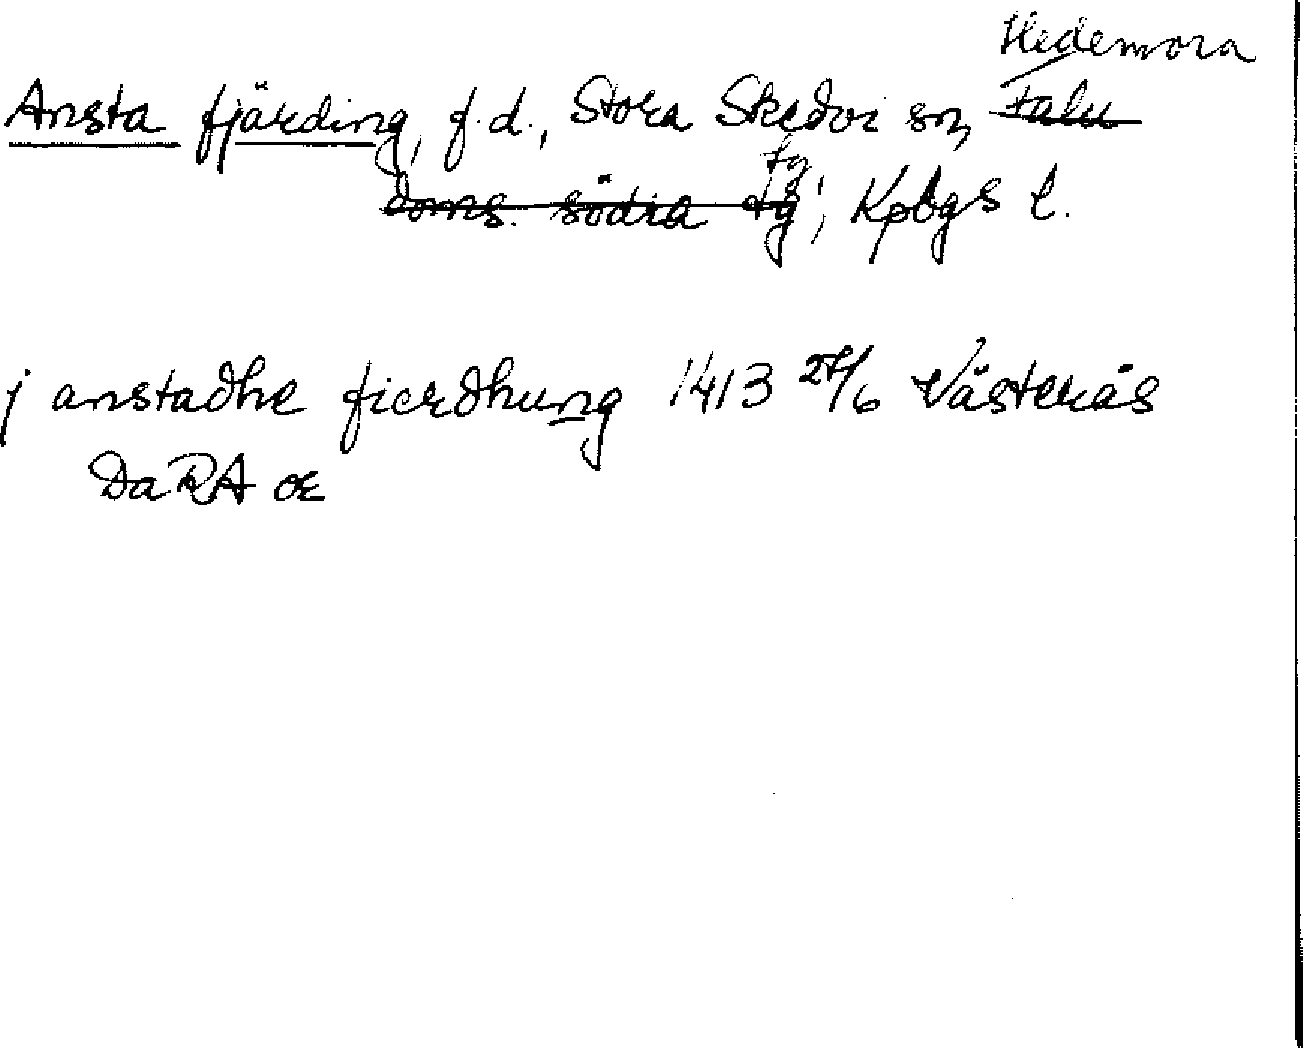 Hedemora
Ansta fjärding, f.d., Stora Skedvi sn, Falu
tg
doms. södra tg, Kpbgs l.
j anstadhe fierdhung 1413 27/6 Västerås
Da RA or